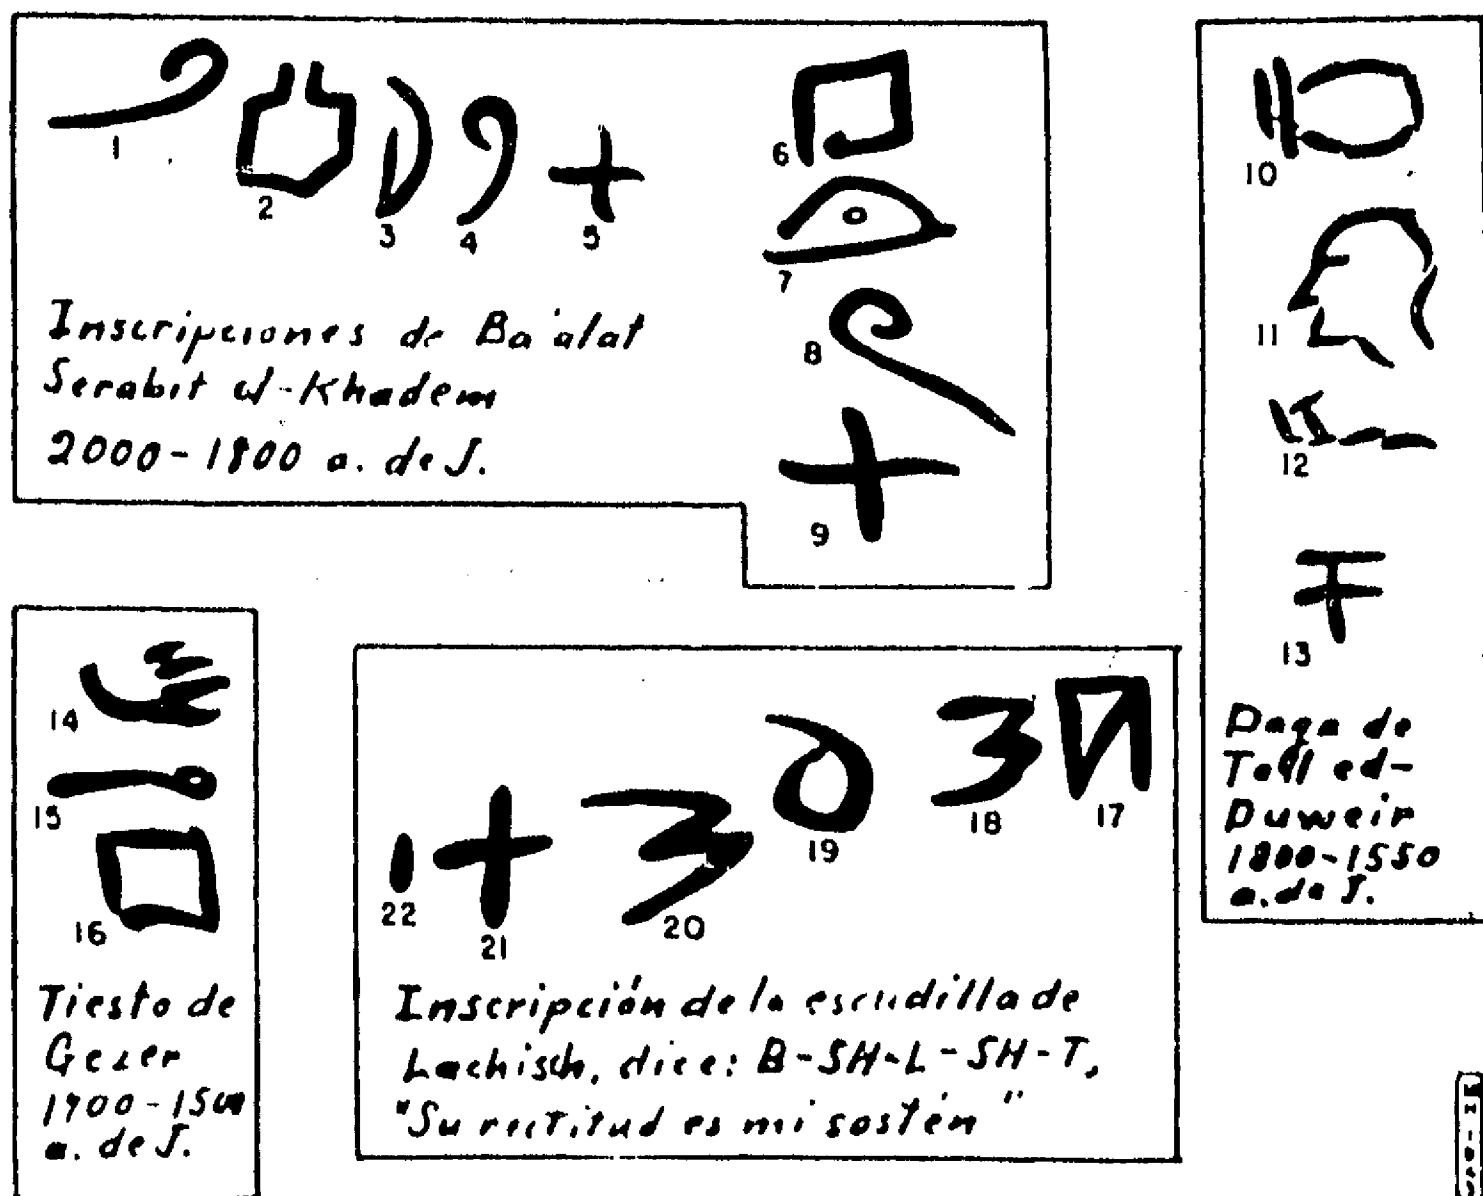 1
2
3
4
5
Inscripciones de Ba'alat
Serabit el-Khadem
2000-1800 a. de J.
6
7
8
9
10
11
12
13
Daga de
Tell ed-
Duweir
1800-1550
a. de J.
14
15
16
Tiesto de
Gezer
a. de J.
22
21
20
19
18
17
Inscripción de la escudilla de
Lachisch, dice: B-SH-L-SH-T,
"Su rectitud es mi sostén"